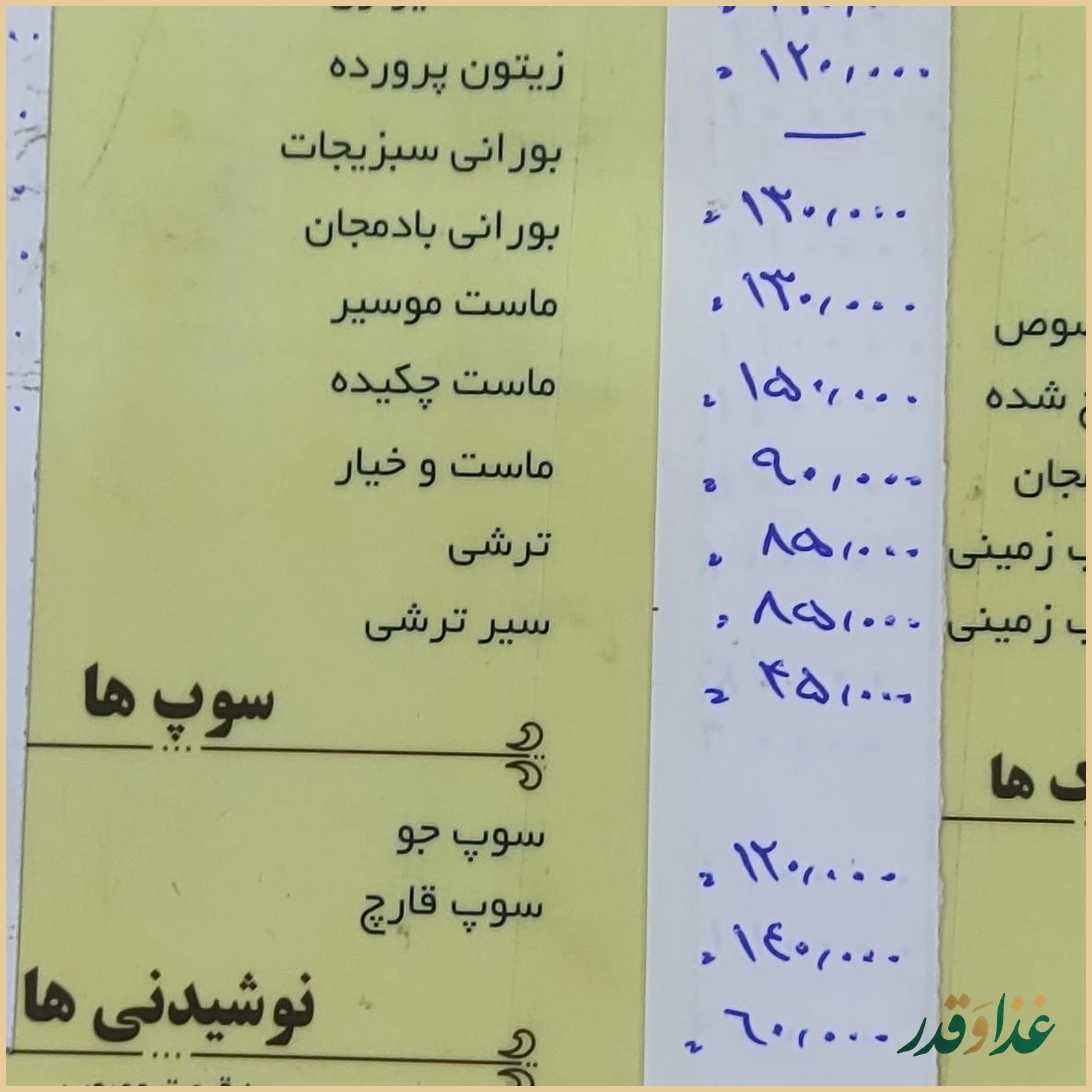 زیتون پرورده ۱۲۰,۰۰۰
بورانی سبزیجات —
بورانی بادمجان ۱۳۰,۰۰۰
ماست موسیر ۱۳۰,۰۰۰
شده ماست چکیده ۱۵۰,۰۰۰
ماست و خیار ۹۰,۰۰۰
زمینی ترشی ۸۵,۰۰۰
زمینی سیر ترشی ۸۵,۰۰۰
۴۵,۰۰۰
سوپ ها
ها
سوپ جو ۱۲۰,۰۰۰
سوپ قارچ ۱۴۰,۰۰۰
نوشیدنی ها ۶۰,۰۰۰
غذا و قدر